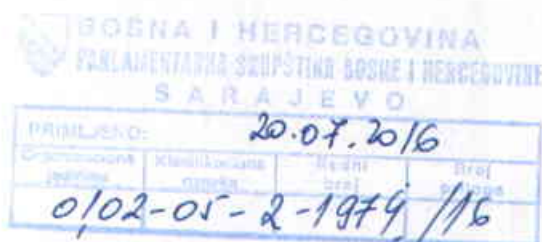 BOSNA I HERCEGOVINA
PARLAMENTARNA SKUPŠTINA BOSNE I HERCEGOVINE
SARAJEVO
PRIMLJENO: 20.07.2016
Organizaciona jedinica Klasifikaciona oznaka Redni broj Broj priloga
0/02-05-2-1974/16